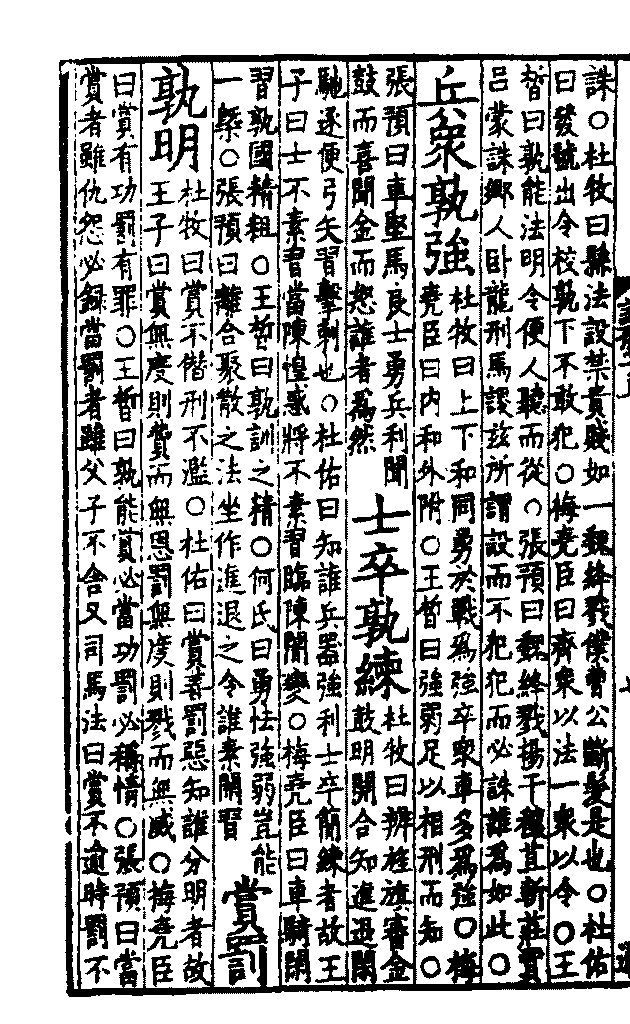 誅○杜牧曰縣法設禁貴賤如一魏絳戮僕曹公斷髮是也○杜佑
曰發號出令校孰下不敢犯○梅堯臣曰齊衆以法一衆以令○王
晳曰孰能法明令便人聽而從○張預曰魏絳戮揚干穰苴斬莊賈
呂蒙誅鄉人臥龍刑馬謖茲所謂設而不犯犯而必誅誰爲如此○
兵衆孰強
杜牧曰上下和同勇於戰爲強卒衆車多爲強○梅
堯臣曰内和外附○王晳曰強弱足以相刑而知○
張預曰車堅馬良士勇兵利聞
鼓而喜聞金而怒誰者爲然
士卒孰練
杜牧曰辨旌旗審金
鼓明開合知進退閑
馳逐便弓矢習擊刺也○杜佑曰知誰兵器強利士卒簡練者故王
子曰士不素習當陳惶惑將不素習臨陳闇變○梅堯臣曰車騎閑
習孰國精粗○王晳曰孰訓之精○何氏曰勇怯強弱豈能
一槩○張預曰離合聚散之法坐作進退之令誰素閑習
賞罰
孰明
杜牧曰賞不僭刑不濫○杜佑曰賞善罰惡知誰分明者故
王子曰賞無度則費而無恩罰無度則戮而無威○梅堯臣
曰賞有功罰有罪○王晳曰孰能賞必當功罰必稱情○張預曰當
賞者雖仇怨必録當罰者雖父子不舍又司馬法曰賞不逾時罰不